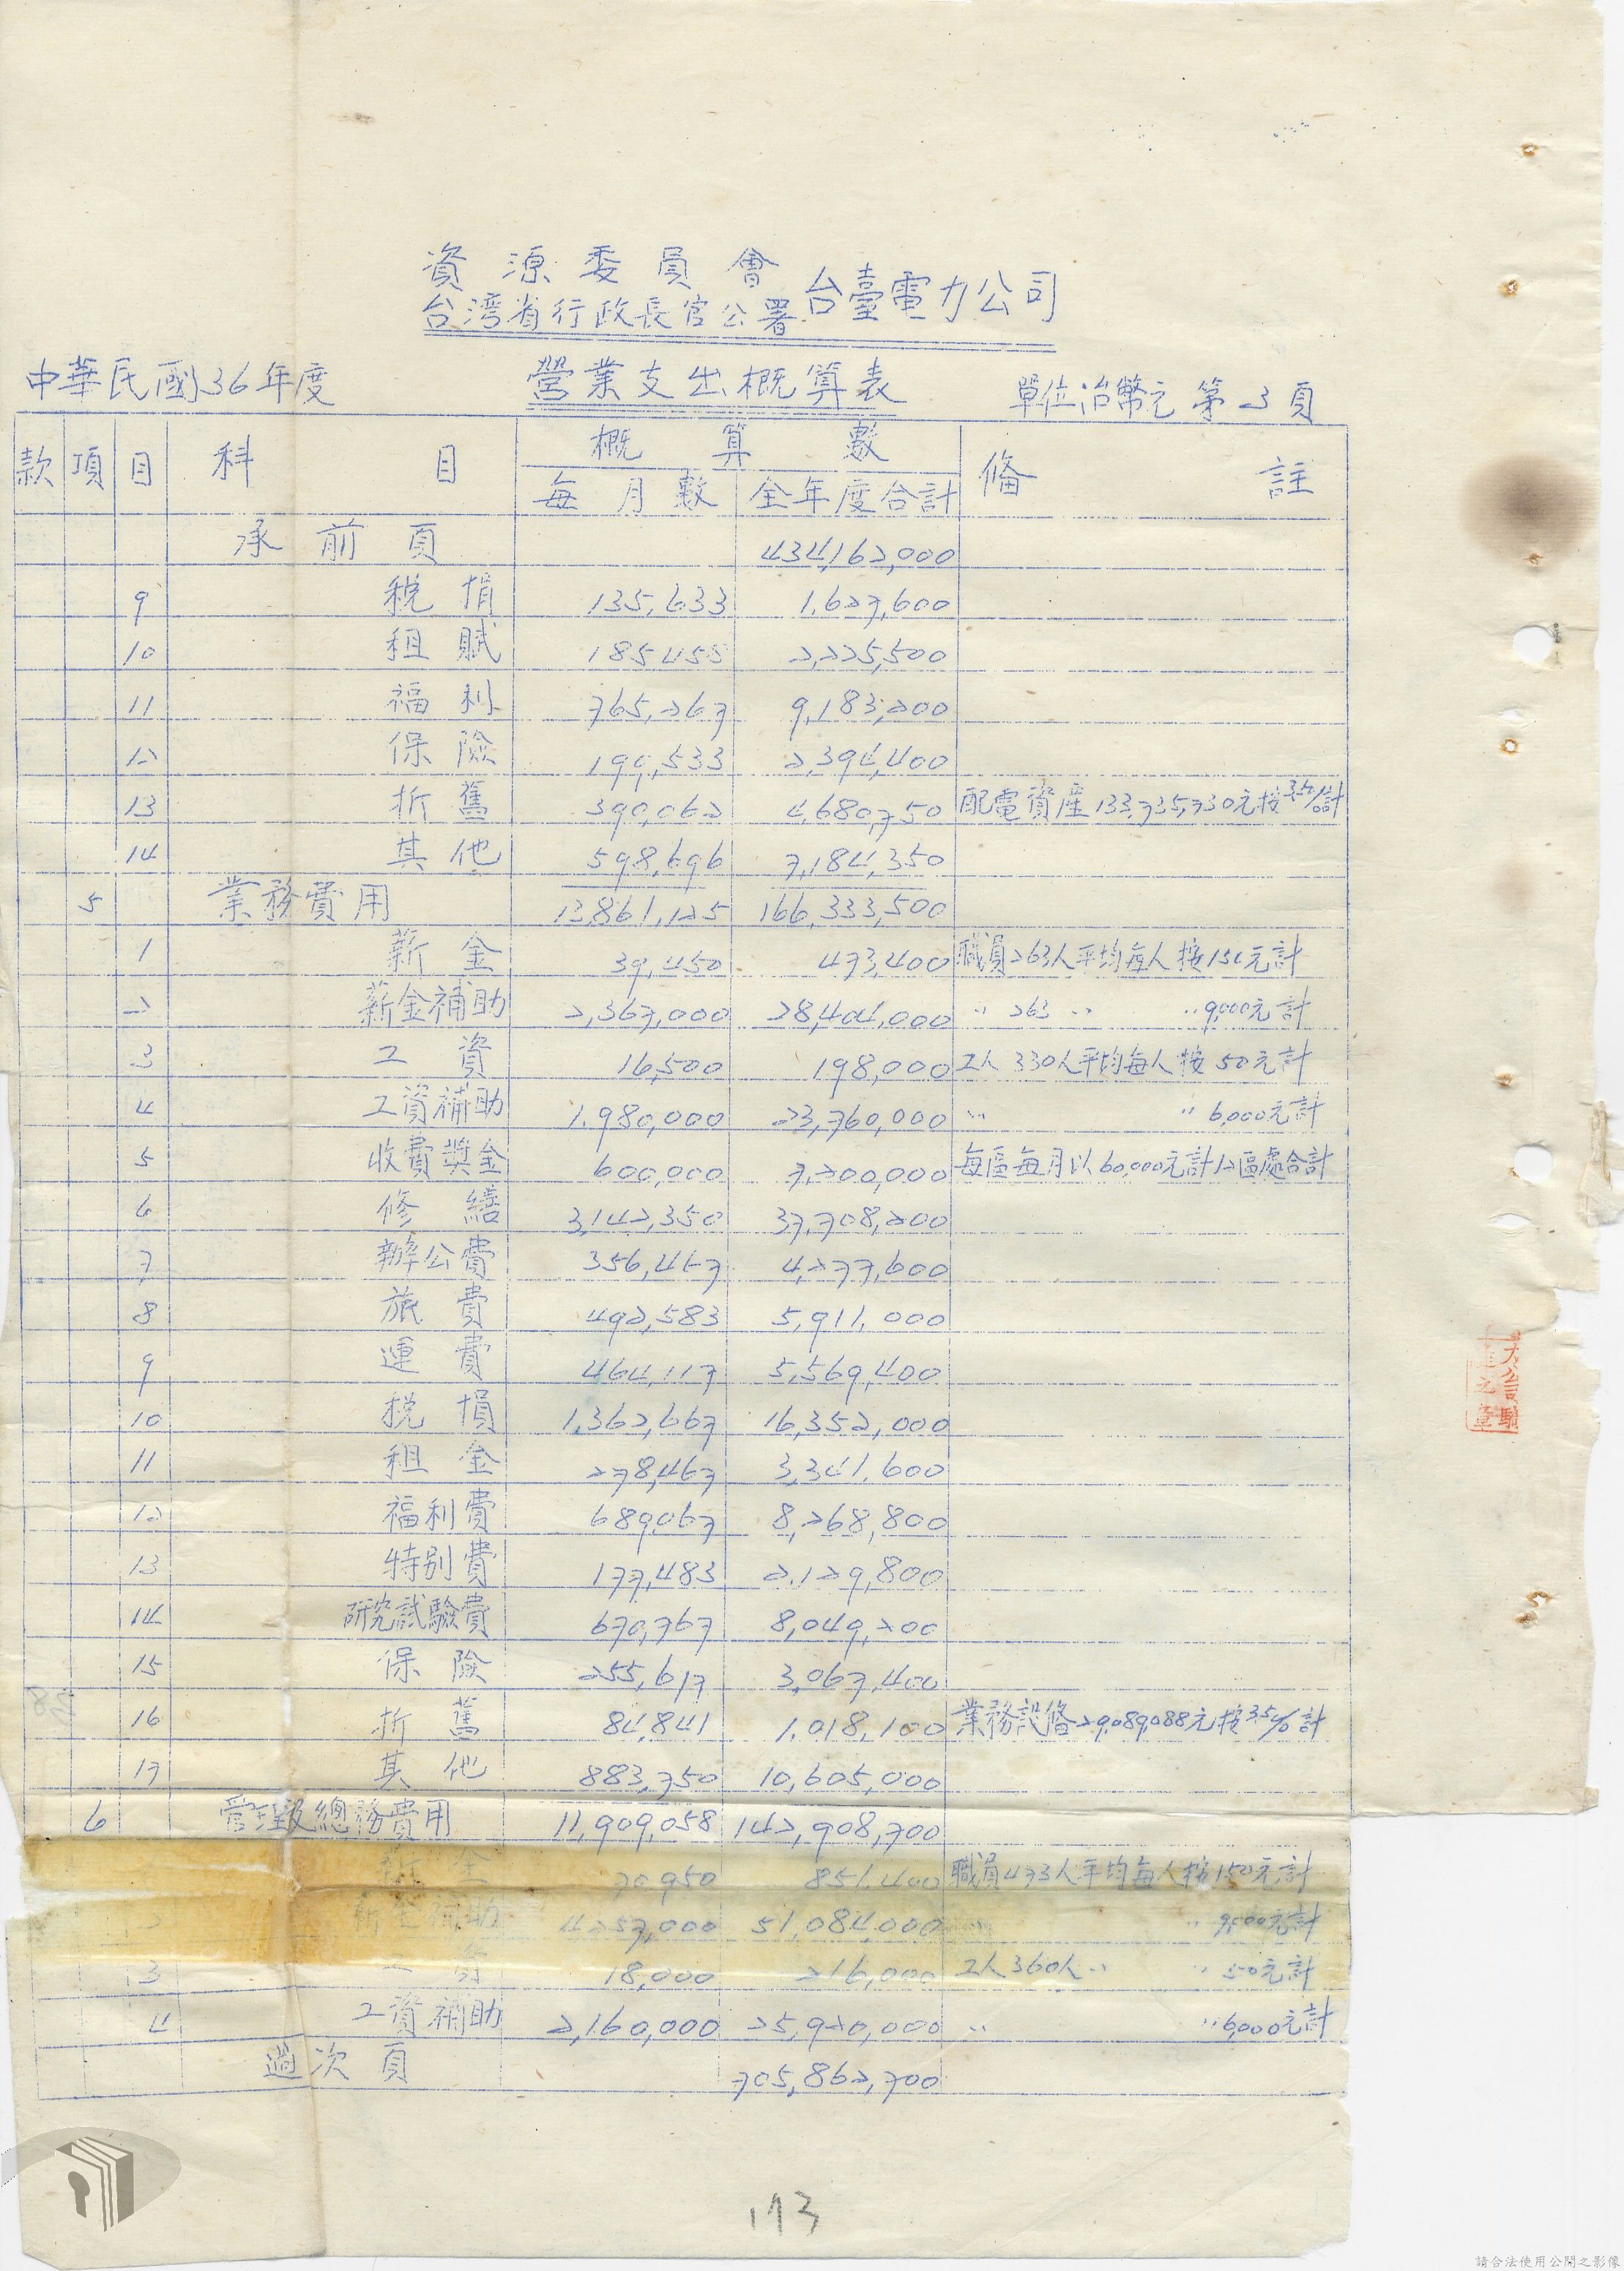 資源委員會
台湾省行政長官公署 台臺電力公司
中華民國36年度 營業支出概算表 單位台幣元 第3頁
款 項 目 科目 概算數 備註
每月數 全年度合計
承前頁 434,162,000
9 稅捐 135,633 1,627,600
10 租賦 185,458 2,225,500
11 福利 765,267 9,183,200
12 保險 199,533 2,394,400
13 折舊 390,062 4,680,750 配電資產133,735,730元按3.5%計
14 其他 598,696 7,184,350
5 業務費用 13,861,125 166,333,500
1 薪金 39,450 473,400 職員263人平均每人按150元計
2 薪金補助 2,367,000 28,404,000 〃 263 〃 〃 9,000元計
3 工資 16,500 198,000 工人330人平均每人按50元計
4 工資補助 1,980,000 23,760,000 〃 〃 6,000元計
5 收費獎金 600,000 7,200,000 每區每月以60,000元計12區處合計
6 修繕 3,142,350 37,708,200
7 辦公費 356,467 4,277,600
8 旅費 492,583 5,911,000
9 運費 464,117 5,569,400
10 稅損 1,362,667 16,352,000
11 租金 278,467 3,341,600
12 福利費 689,067 8,268,800
13 特別費 177,483 2,129,800
14 研究試驗費 670,767 8,049,200
15 保險 255,617 3,067,400
16 折舊 84,841 1,018,100 業務設備29,089,088元按3.5%計
17 其他 883,750 10,605,000
6 管理及總務費用 11,909,058 142,908,700
薪金 70,950 851,400 職員473人平均每人按150元計
2 薪金補助 4,257,000 51,084,000 〃 〃 9,000元計
3 工資 18,000 216,000 工人360人〃 〃 50元計
4 工資補助 2,160,000 25,920,000 〃 〃 6,000元計
過次頁 705,862,700
173
請合法使用公開之影像